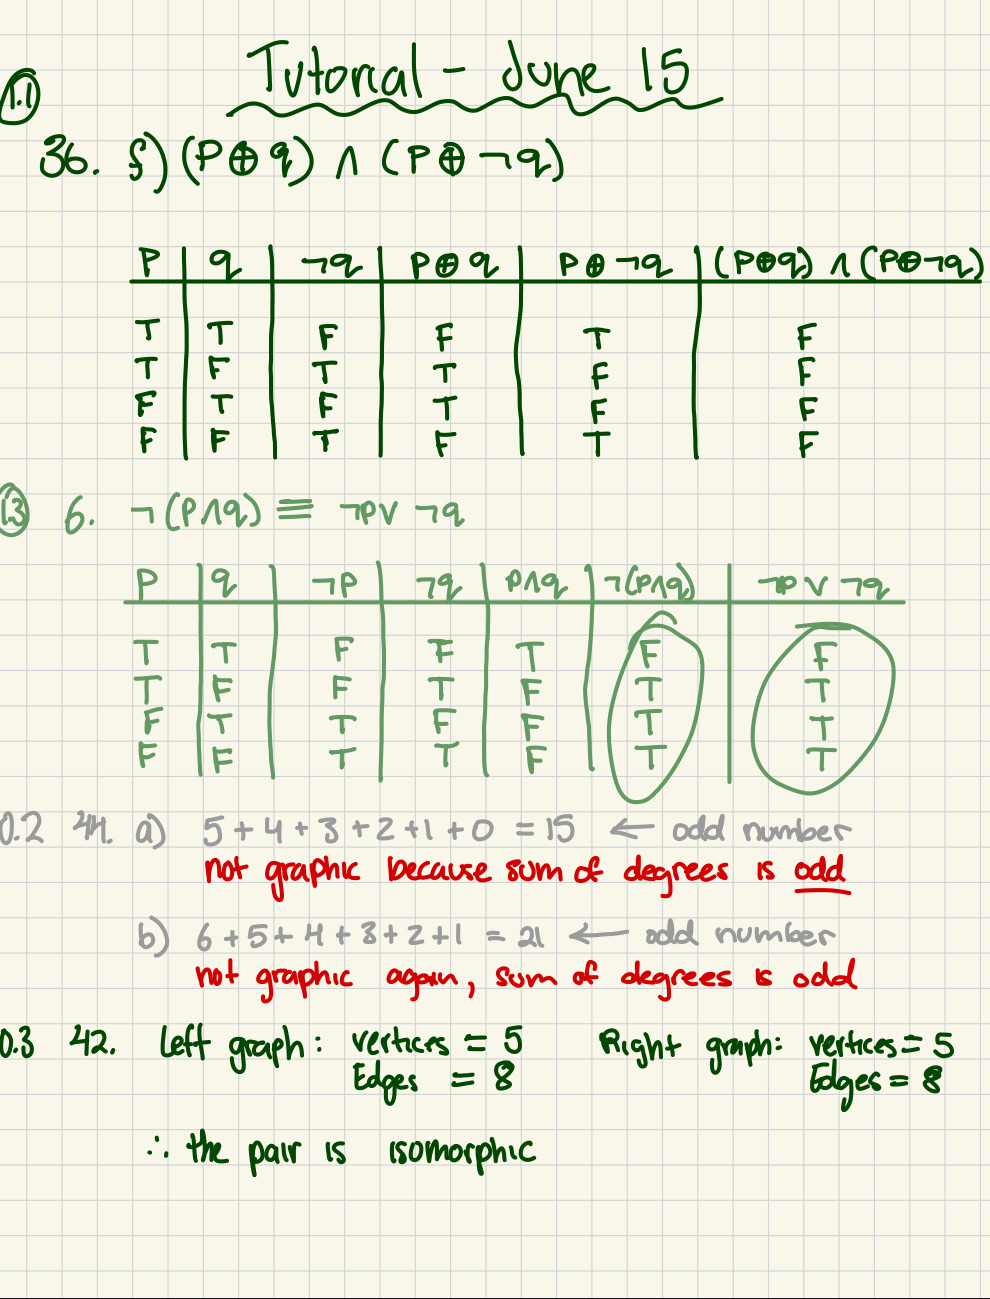 Tutorial - June 15
1.1
36. f) (P ⊕ q) ∧ (P ⊕ ¬q)
P q ¬q P⊕q P⊕¬q (P⊕q) ∧ (P⊕¬q)
T T F F T F
T F T T F F
F T F T F F
F F T F T F
1.3 6. ¬(P∧q) ≡ ¬p∨ ¬q
P q ¬P ¬q P∧q ¬(p∧q) ¬p ∨ ¬q
T T F F T F F
T F F T F T T
F T T F F T T
F F T T F T T
0.2 44. a) 5+4+3+2+1+0 = 15 ← odd number
not graphic because sum of degrees is odd
b) 6+5+4+3+2+1 = 21 ← odd number
not graphic again, sum of degrees is odd
0.3 42. Left graph: vertices = 5 Right graph: vertices = 5
Edges = 8 Edges = 8
∴ the pair is isomorphic